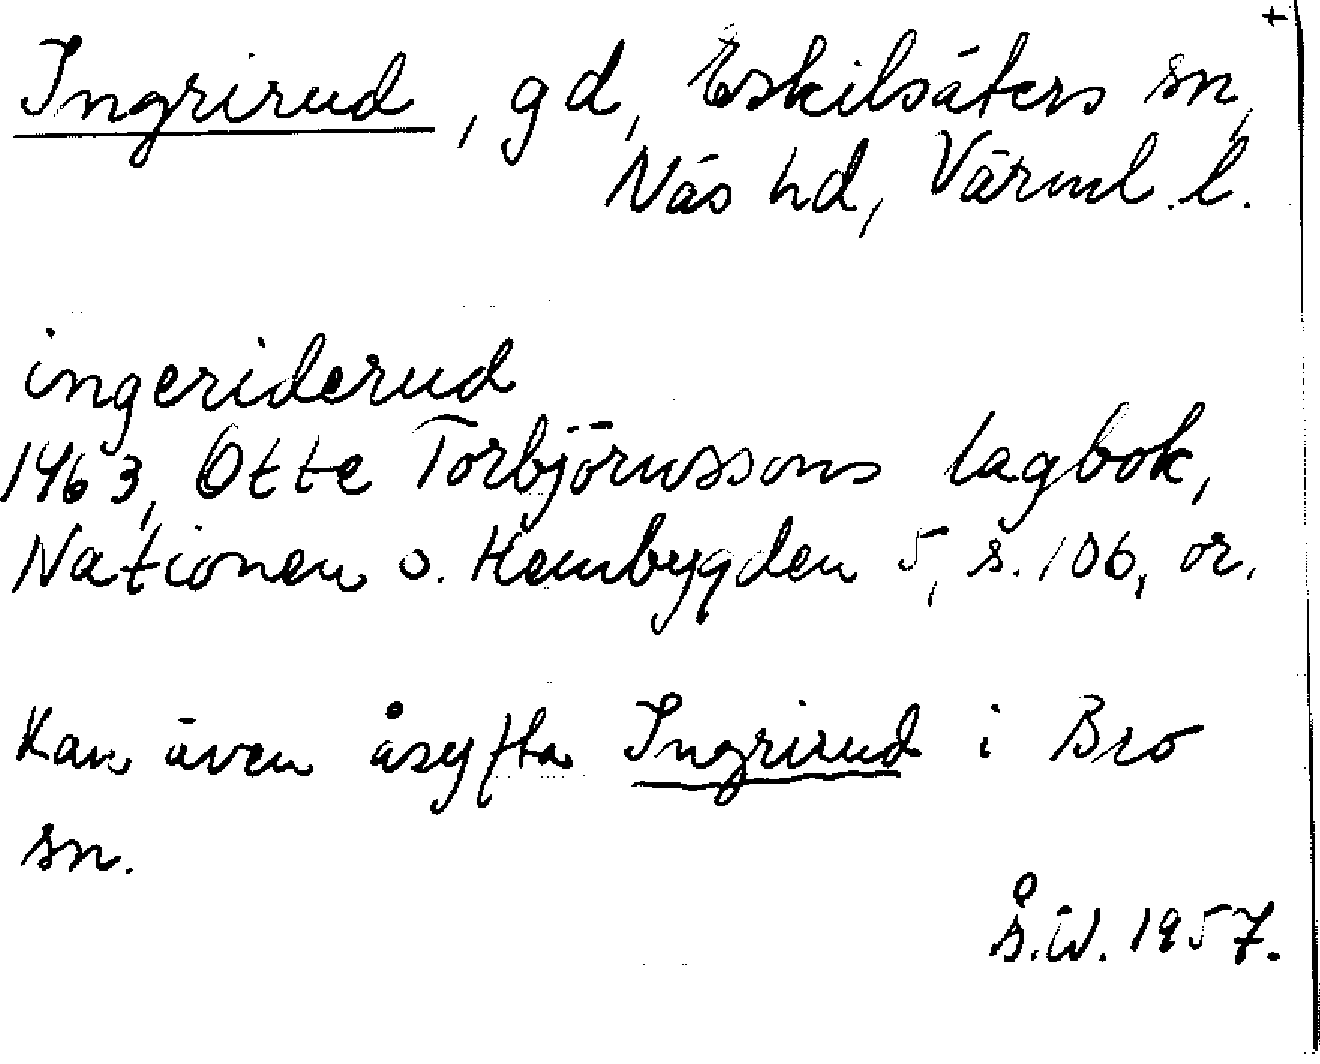 +
Ingrirud, gd, Eskilsäters sn,
Näs hd, Värml. l.
ingeriderud
1463, Otte Torbjörnssons lagbok,
Nationen o. Hembygden 5, s. 106, or.
Kan även åsyfta Ingrirud i Bro
sn.
Å.W. 1957.